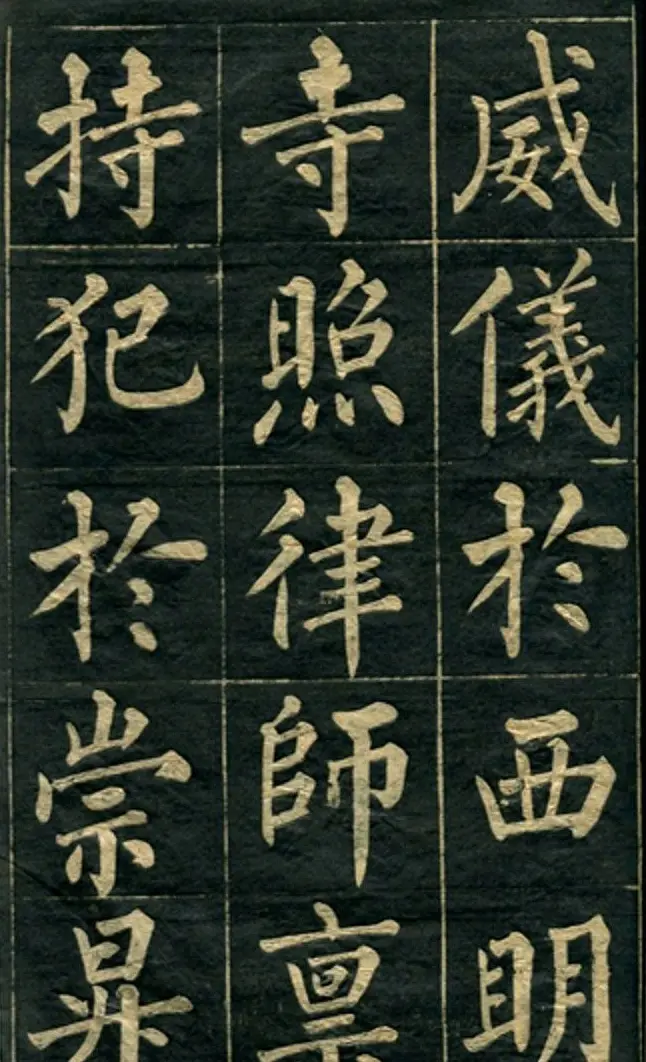 威儀於西明
寺照律師禀
持犯於崇昇